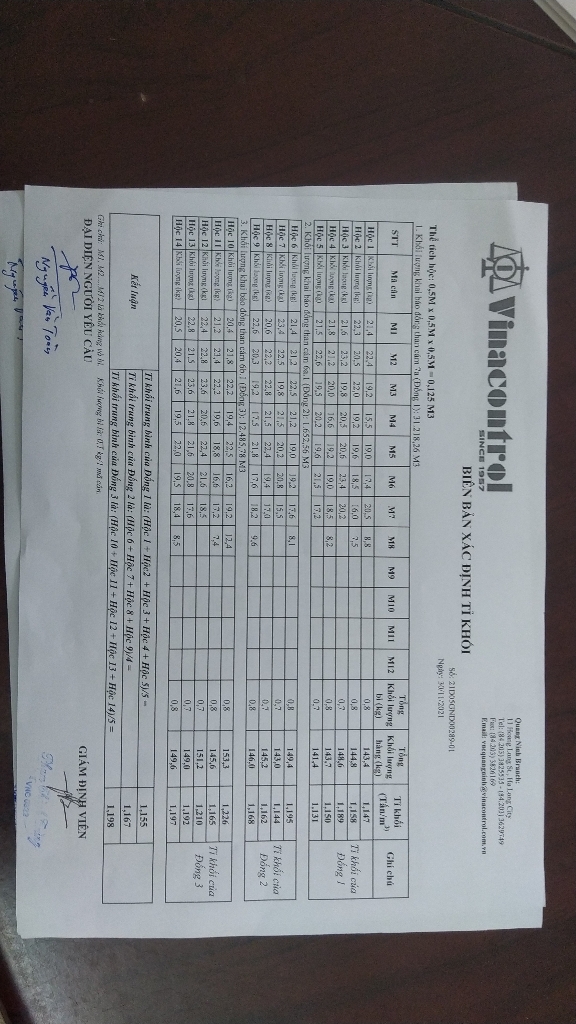 Vinacontrol
SINCE 1957
Quang Ninh Branch:
11 Hoang Long St., Ha Long City
Tel: (84.203) 3825535 - (84.203) 3629749
Fax: (84.203) 3826169
Email: vnequangninh@vinacontrol.com.vn
BIÊN BẢN XÁC ĐỊNH TỈ KHỐI
Ngày: 30/11/2021
Thể tích hộc: 0,5M x 0,5M x 0,5M = 0,125 M3
1. Khối lượng khai báo đống than cám 7a (Đống 1): 31.218,26 M3
STT Mã cân M1 M2 M3 M4 M5 M6 M7 M8 M9 M10 M11 M12 Tổng Khối lượng bì (kg) Tổng Khối lượng hàng (kg) Tỉ khối (Tấn/m³) Ghi chú
Hộc 1 Khối lượng (kg) 21,4 22,4 19,2 15,5 19,0 17,4 20,5 8,8 0,8 143,4 1,147 Tỉ khối của Đống 1
Hộc 2 Khối lượng (kg) 22,3 20,5 22,0 19,2 19,6 18,5 16,0 7,5 0,8 144,8 1,158
Hộc 3 Khối lượng (kg) 21,6 23,2 19,8 20,5 20,6 23,4 20,2 0,7 148,6 1,189
Hộc 4 Khối lượng (kg) 21,8 21,2 20,0 16,6 19,2 19,0 18,5 8,2 0,8 143,7 1,150
Hộc 5 Khối lượng (kg) 21,5 22,6 19,5 20,2 19,6 21,5 17,2 0,7 141,4 1,131
2. Khối lượng khai báo đống than cám 6a.1 (Đống 2): 1.652,56 M3
Hộc 6 Khối lượng (kg) 21,4 21,2 22,5 21,2 19,0 19,2 17,6 8,1 0,8 149,4 1,195 Tỉ khối của Đống 2
Hộc 7 Khối lượng (kg) 23,4 22,5 19,8 21,5 20,2 20,8 15,5 0,7 143,0 1,144
Hộc 8 Khối lượng (kg) 20,6 22,2 22,8 21,5 22,4 19,4 17,0 0,7 145,2 1,162
Hộc 9 Khối lượng (kg) 22,6 20,3 19,2 17,5 21,8 17,6 18,2 9,6 0,8 146,0 1,168
3. Khối lượng khai báo đống than cám 6b.1 (Đống 3): 12.485,78 M3
Hộc 10 Khối lượng (kg) 20,4 21,8 22,2 19,4 22,5 16,2 19,2 12,4 0,8 153,3 1,226 Tỉ khối của Đống 3
Hộc 11 Khối lượng (kg) 21,2 23,4 22,2 19,6 18,8 16,6 17,2 7,4 0,8 145,6 1,165
Hộc 12 Khối lượng (kg) 22,4 22,8 23,6 20,6 22,4 21,6 18,5 0,7 151,2 1,210
Hộc 13 Khối lượng (kg) 22,8 21,5 23,6 21,8 21,6 20,8 17,6 0,7 149,0 1,192
Hộc 14 Khối lượng (kg) 20,5 20,4 21,6 19,5 22,0 19,5 18,4 8,5 0,8 149,6 1,197
Kết luận
Tỉ khối trung bình của Đống 1 là: (Hộc 1 + Hộc2 + Hộc 3 + Hộc 4 + Hộc 5)/5 = 1,155
Tỉ khối trung bình của Đống 2 là: (Hộc 6 + Hộc 7 + Hộc 8 + Hộc 9)/4 = 1,167
Tỉ khối trung bình của Đống 3 là: (Hộc 10 + Hộc 11 + Hộc 12 + Hộc 13 + Hộc 14)/5 = 1,198
Ghi chú: M1, M2 ...M12 là khối hàng và bì. Khối lượng bì là: 0,1 kg/1 mã cân.
ĐẠI DIỆN NGƯỜI YÊU CẦU
GIÁM ĐỊNH VIÊN
Nguyễn Văn Toàn